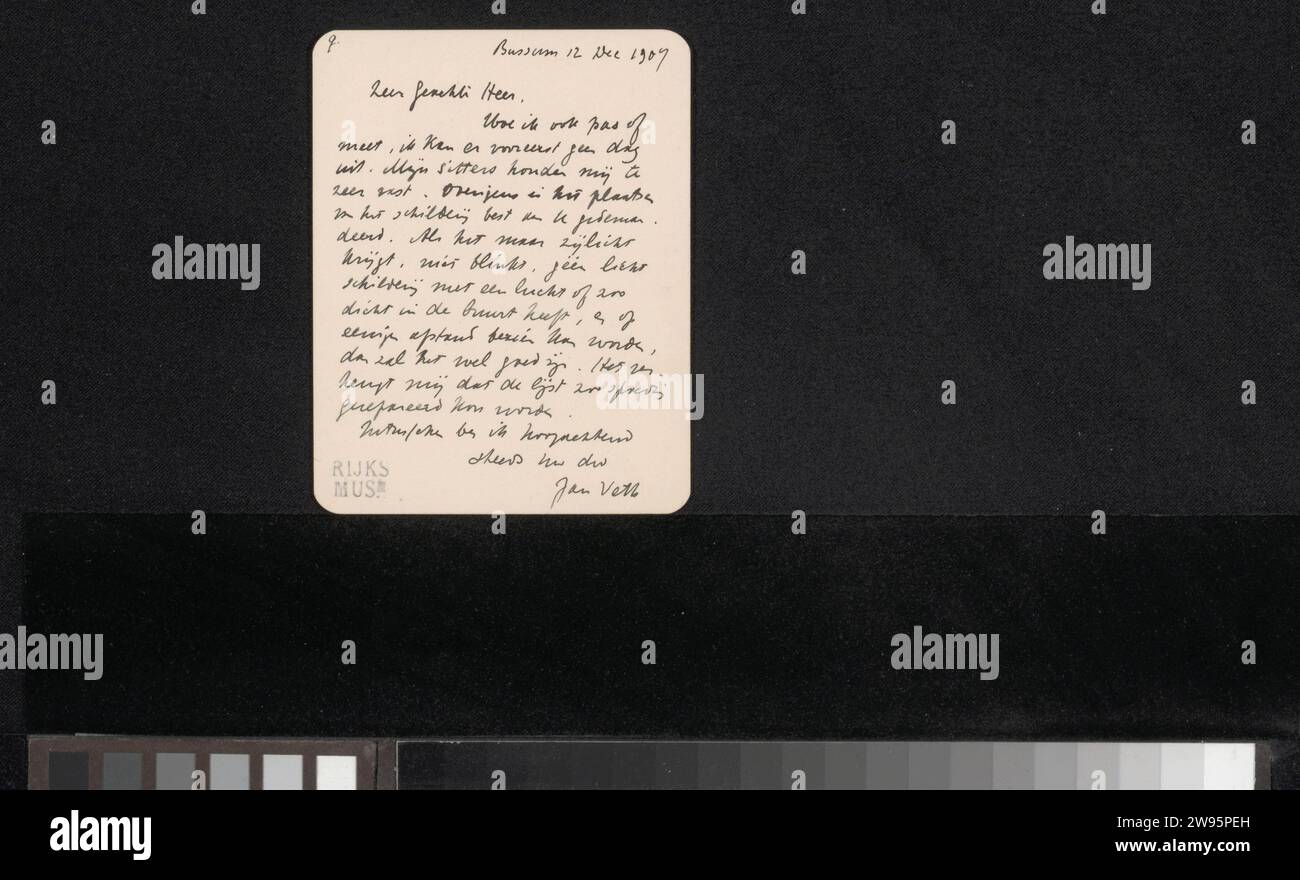 9.
Bussum 12 Dec 1907
Zeer Geachte Heer,
Hoe ik ook pas of
meet, ik kan er vooreerst geen dag
uit. Mijn sitters houden mij te
zeer vast. Overigens is het plaatsen
van het schilderij best aan U
deerd. Als het maar zijlicht
krijgt, niet blinkt, géén licht
schilderij met een lucht of zoo
dicht in de buurt heeft, en op
eenigen afstand bezien kan worden,
dan zal het wel goed zijn. Het ver
heugt mij dat de lijst zoo spoedig
gerepareerd kon worden.
Intusschen ben ik hoogachtend
steeds uw dw
Jan Veth
RIJKS
MUS.M
a alamy
alamy
Image ID: 2W95PEH
www.alamy.com